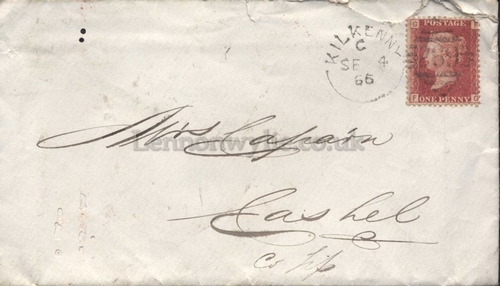 KILKENNY
C
SE 4
66
POSTAGE
ONE PENNY
Mrs
Lennonwylie.co.uk
Cashel
Co Tip